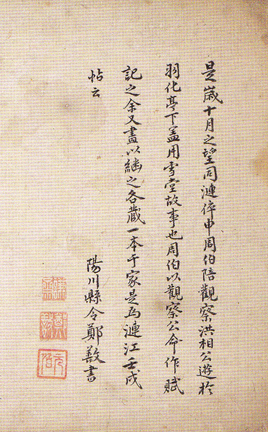 是歲十月之望同漣倅申周伯陪觀察洪相公遊於
羽化亭下盖用雪堂故事也周伯以觀察公命作賦
記之余又畫以繼之各藏一本于家是為漣江壬戌
帖云
陽川縣令鄭敾書